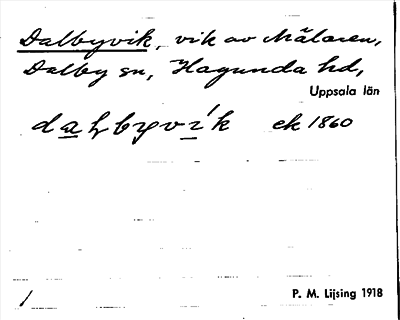 Dalbyvik, vik av Mälaren,
Dalby sn, Hagunda hd,
Uppsala län
dalbyvik ek 1860
P. M. Lijsing 1918
1